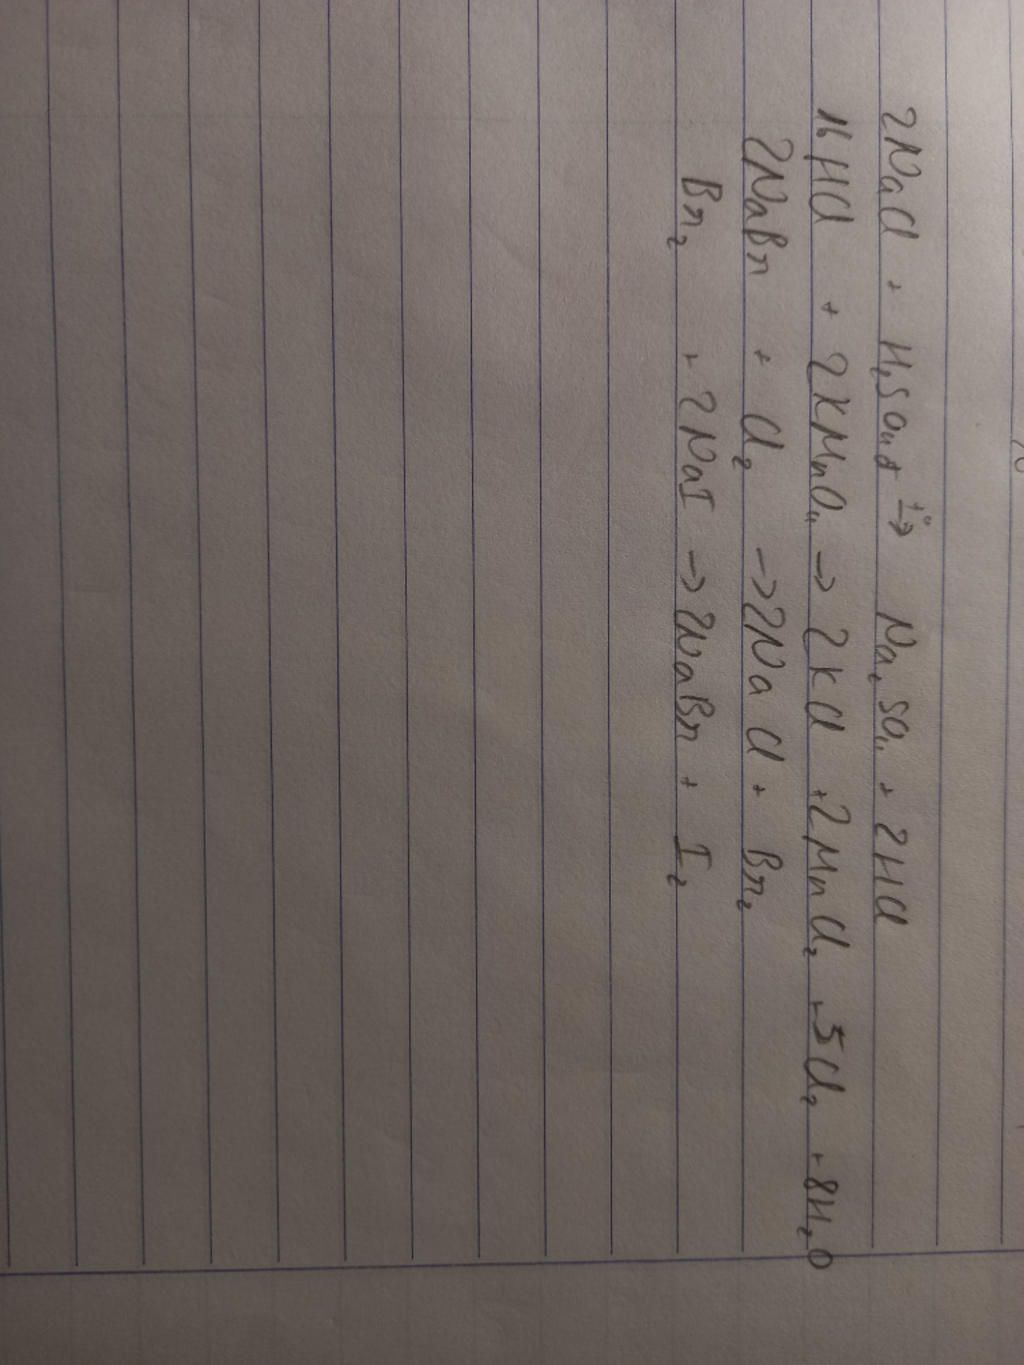 2NaCl + H₂SO₄đ t°→ Na₂SO₄ + 2HCl
16HCl + 2KMnO₄ → 2KCl + 2MnCl₂ + 5Cl₂ + 8H₂O
2NaBr + Cl₂ → 2NaCl + Br₂
Br₂ + 2NaI → 2NaBr + I₂